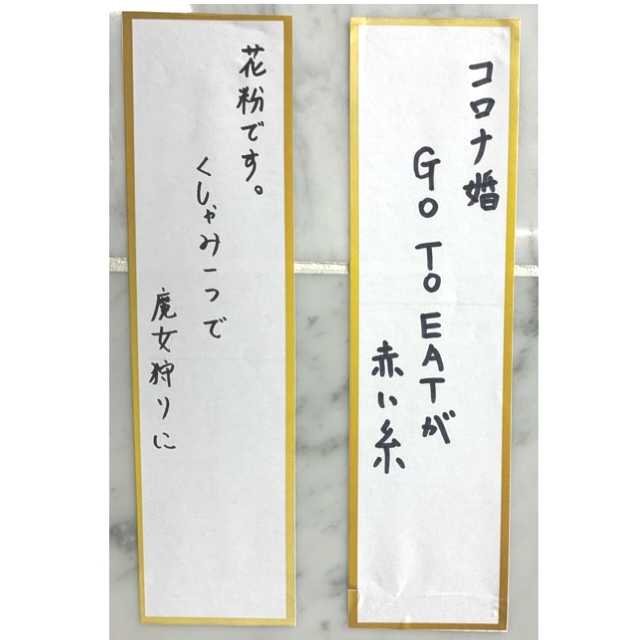 コロナ婚
GO TO EATが
赤い糸
花粉です。
くしゃみ一つで
魔女狩りに